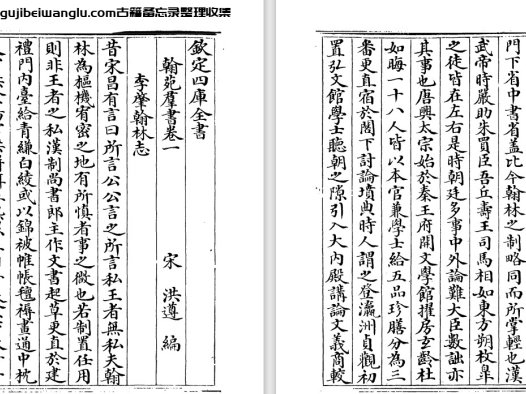 gujibeiwanglu.com古籍备忘录整理收集
欽定四庫全書
翰苑羣書卷一
宋 洪遵 編
李肇翰林志
昔宋昌有言曰所言公公言之所言私王者無私夫翰
林為樞機宥密之地有所慎者事之微也若制置任用
則非王者之私漢制尚書郎主作文書起草更直於建
禮門內臺給青縑白綾或以錦被帷帳氊褥畫通中枕
門下省中書省蓋比今翰林之制略同而所掌輕也漢
武帝時嚴助朱買臣吾丘壽王司馬相如東方朔枚臯
之徒皆在左右是時朝廷多事中外論難大臣數詘亦
其事也唐興太宗始於秦王府開文學館擢房玄齡杜
如晦一十八人皆以本官兼學士給五品珍膳分為三
番更直宿於閤下討論墳典時人謂之登瀛洲貞觀初
置弘文館學士聽朝之隙引入大內殿講論文義商較